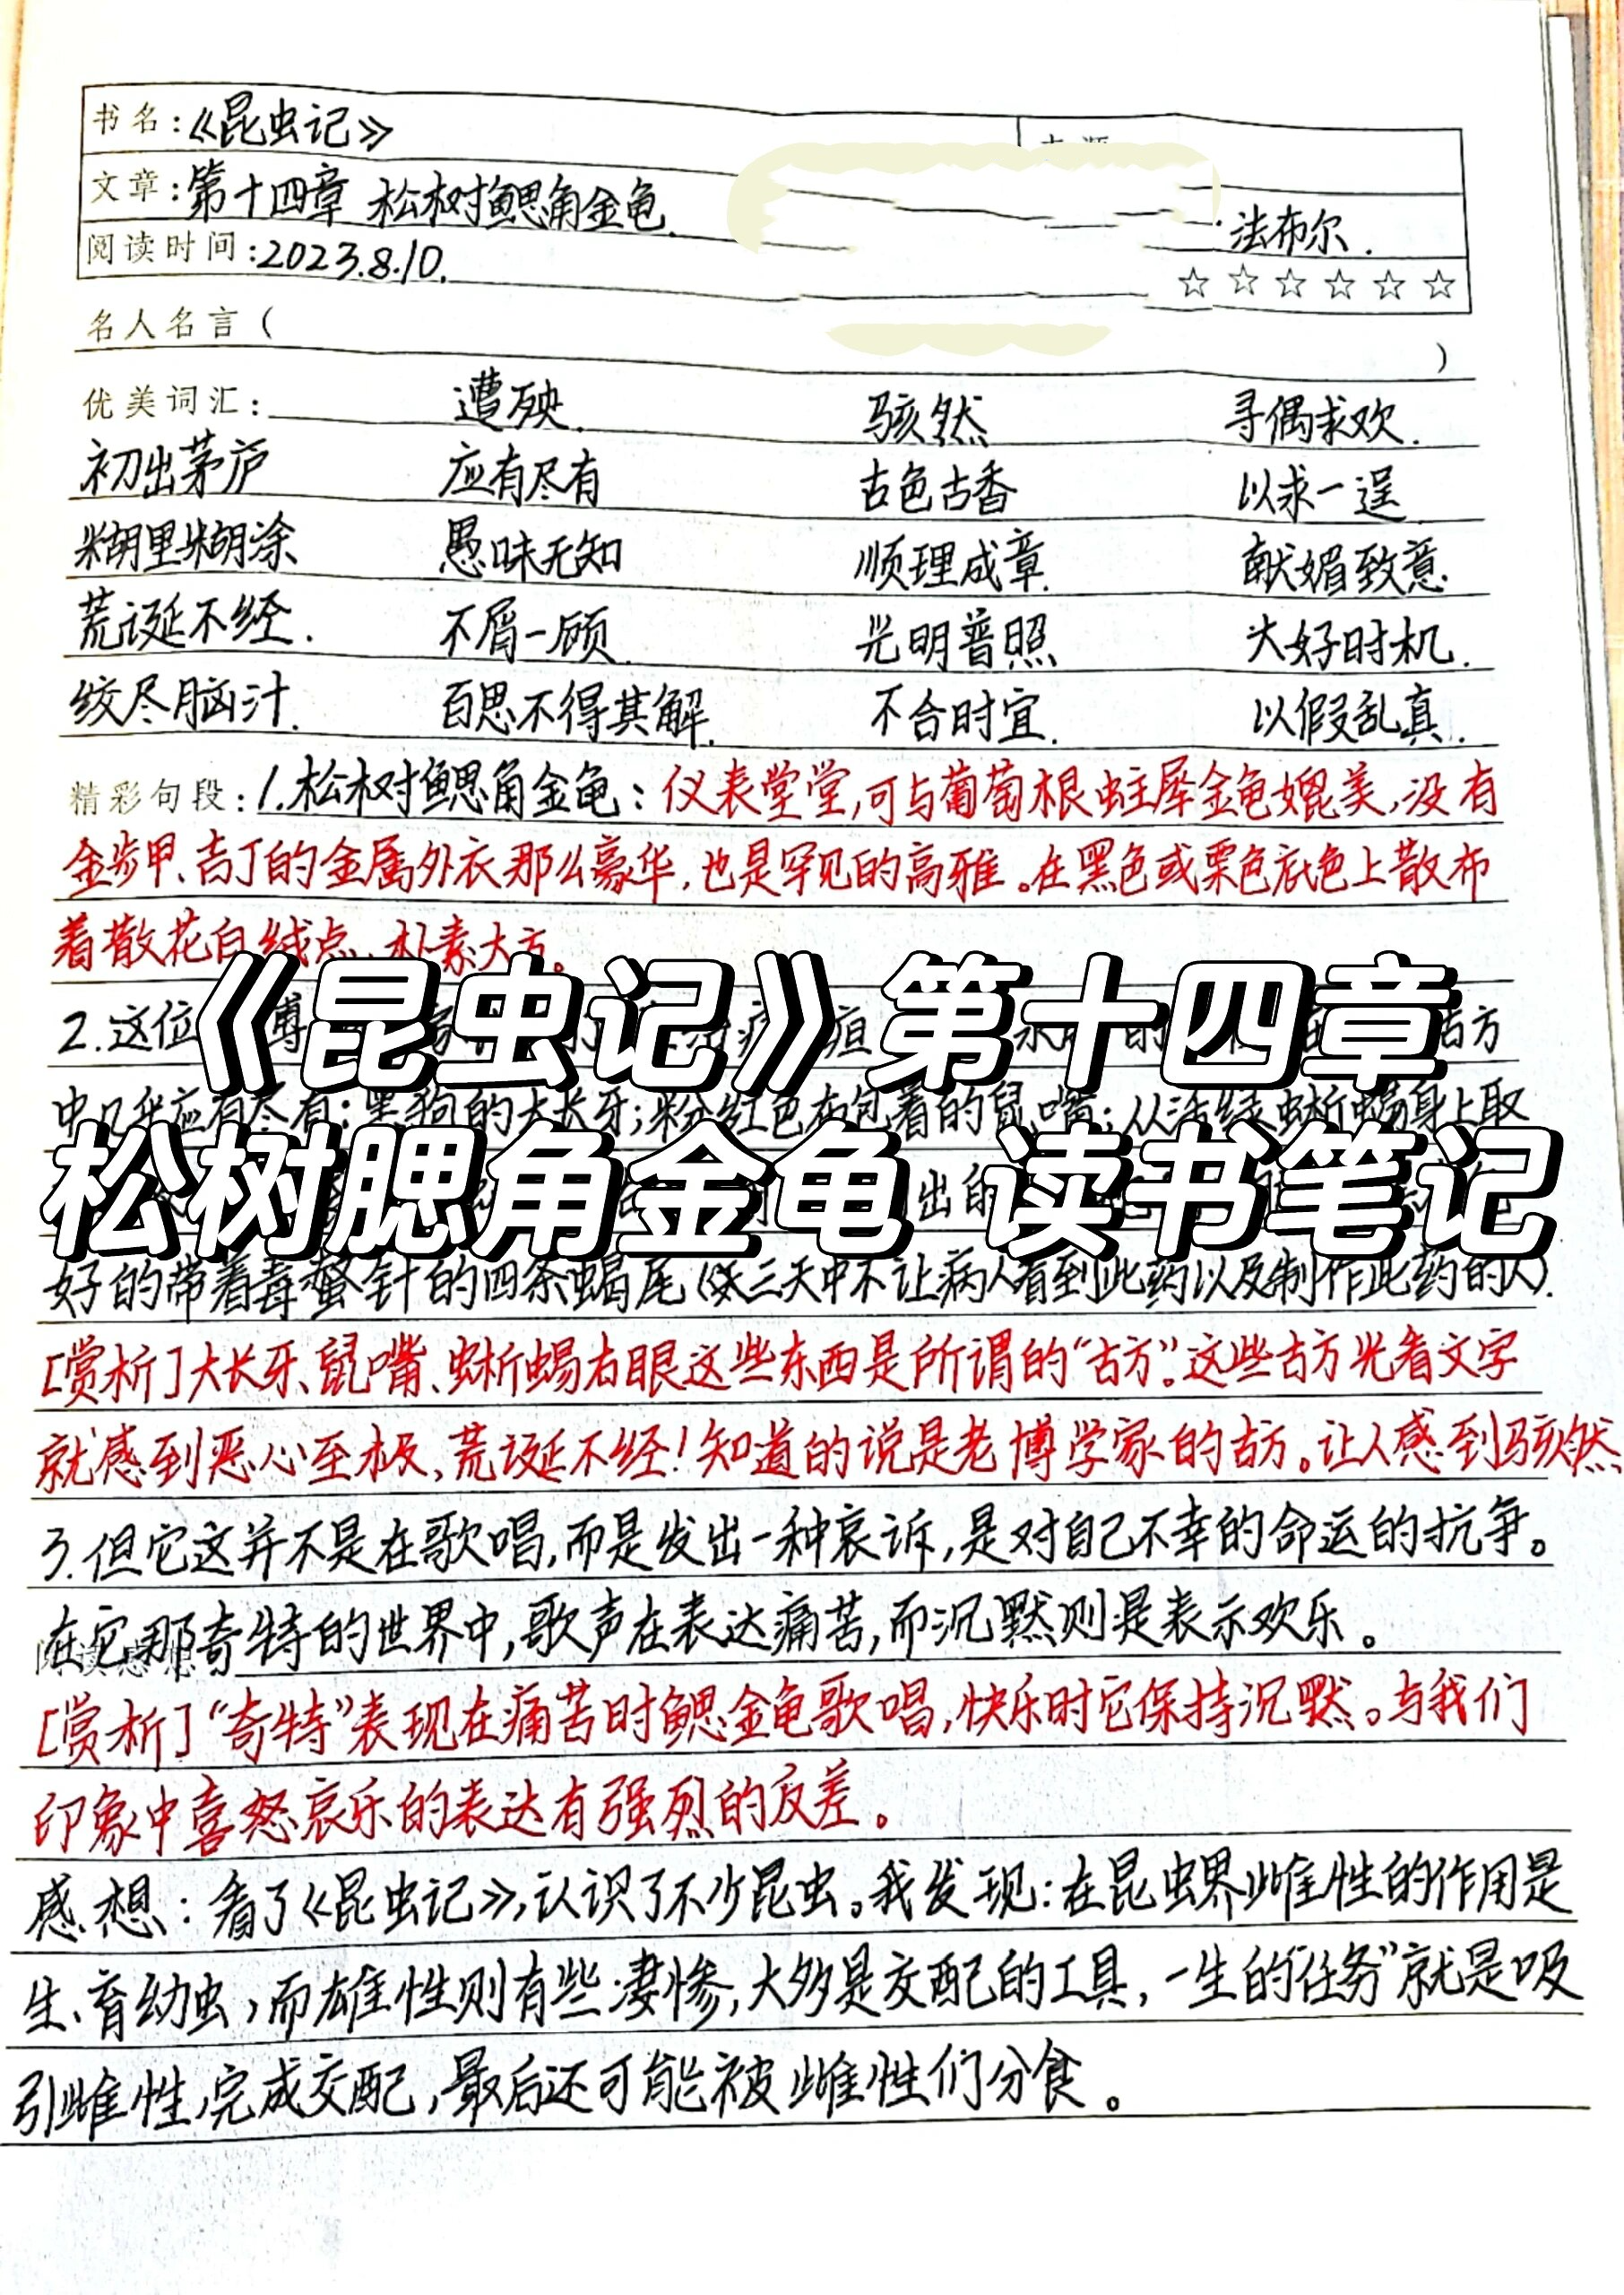 书名：《昆虫记》
文章：第十四章 松树鳃角金龟.
·法布尔.
阅读时间：2023.8.10.
☆☆☆☆☆☆
名人名言（ ）
优美词汇： 遭殃. 骇然 寻偶求欢.
初出茅庐 应有尽有 古色古香 以求一逞
糊里糊涂 愚昧无知 顺理成章. 献媚致意.
荒诞不经. 不屑一顾. 光明普照 大好时机.
绞尽脑汁. 百思不得其解. 不合时宜. 以假乱真.
精彩句段：1.松树鳃角金龟：仪表堂堂，可与葡萄根蛀犀金龟媲美，没有
金步甲、吉丁的金属外衣那么豪华，也是罕见的高雅。在黑色或栗色底色上散布
着散花白绒点，朴素大方。
《昆虫记》第十四章
2.这位 古方
中几乎应有尽有：黑狗的大长牙；粉红色布包着的鼠嘴；从活绿蜥蜴身上取
松树腮角金龟 读书笔记
出的
好的带着毒螫针的四条蝎尾（三天中不让病人看到此药以及制作此药的人）.
[赏析]大长牙、鼠嘴、蜥蜴右眼这些东西是所谓的“古方”。这些古方光看文字
就感到恶心至极，荒诞不经！知道的说是老博学家的古方。让人感到骇然
3.但它这并不是在歌唱，而是发出一种哀诉，是对自己不幸的命运的抗争。
在它那奇特的世界中，歌声在表达痛苦，而沉默则是表示欢乐。
阅读感想
[赏析]“奇特”表现在痛苦时鳃金龟歌唱，快乐时它保持沉默。与我们
印象中喜怒哀乐的表达有强烈的反差。
感想：看了《昆虫记》，认识了不少昆虫。我发现：在昆虫界雌性的作用是
生、育幼虫，而雄性则有些凄惨，大多是交配的工具，一生的“任务”就是吸
引雌性，完成交配，最后还可能被雌性们分食。